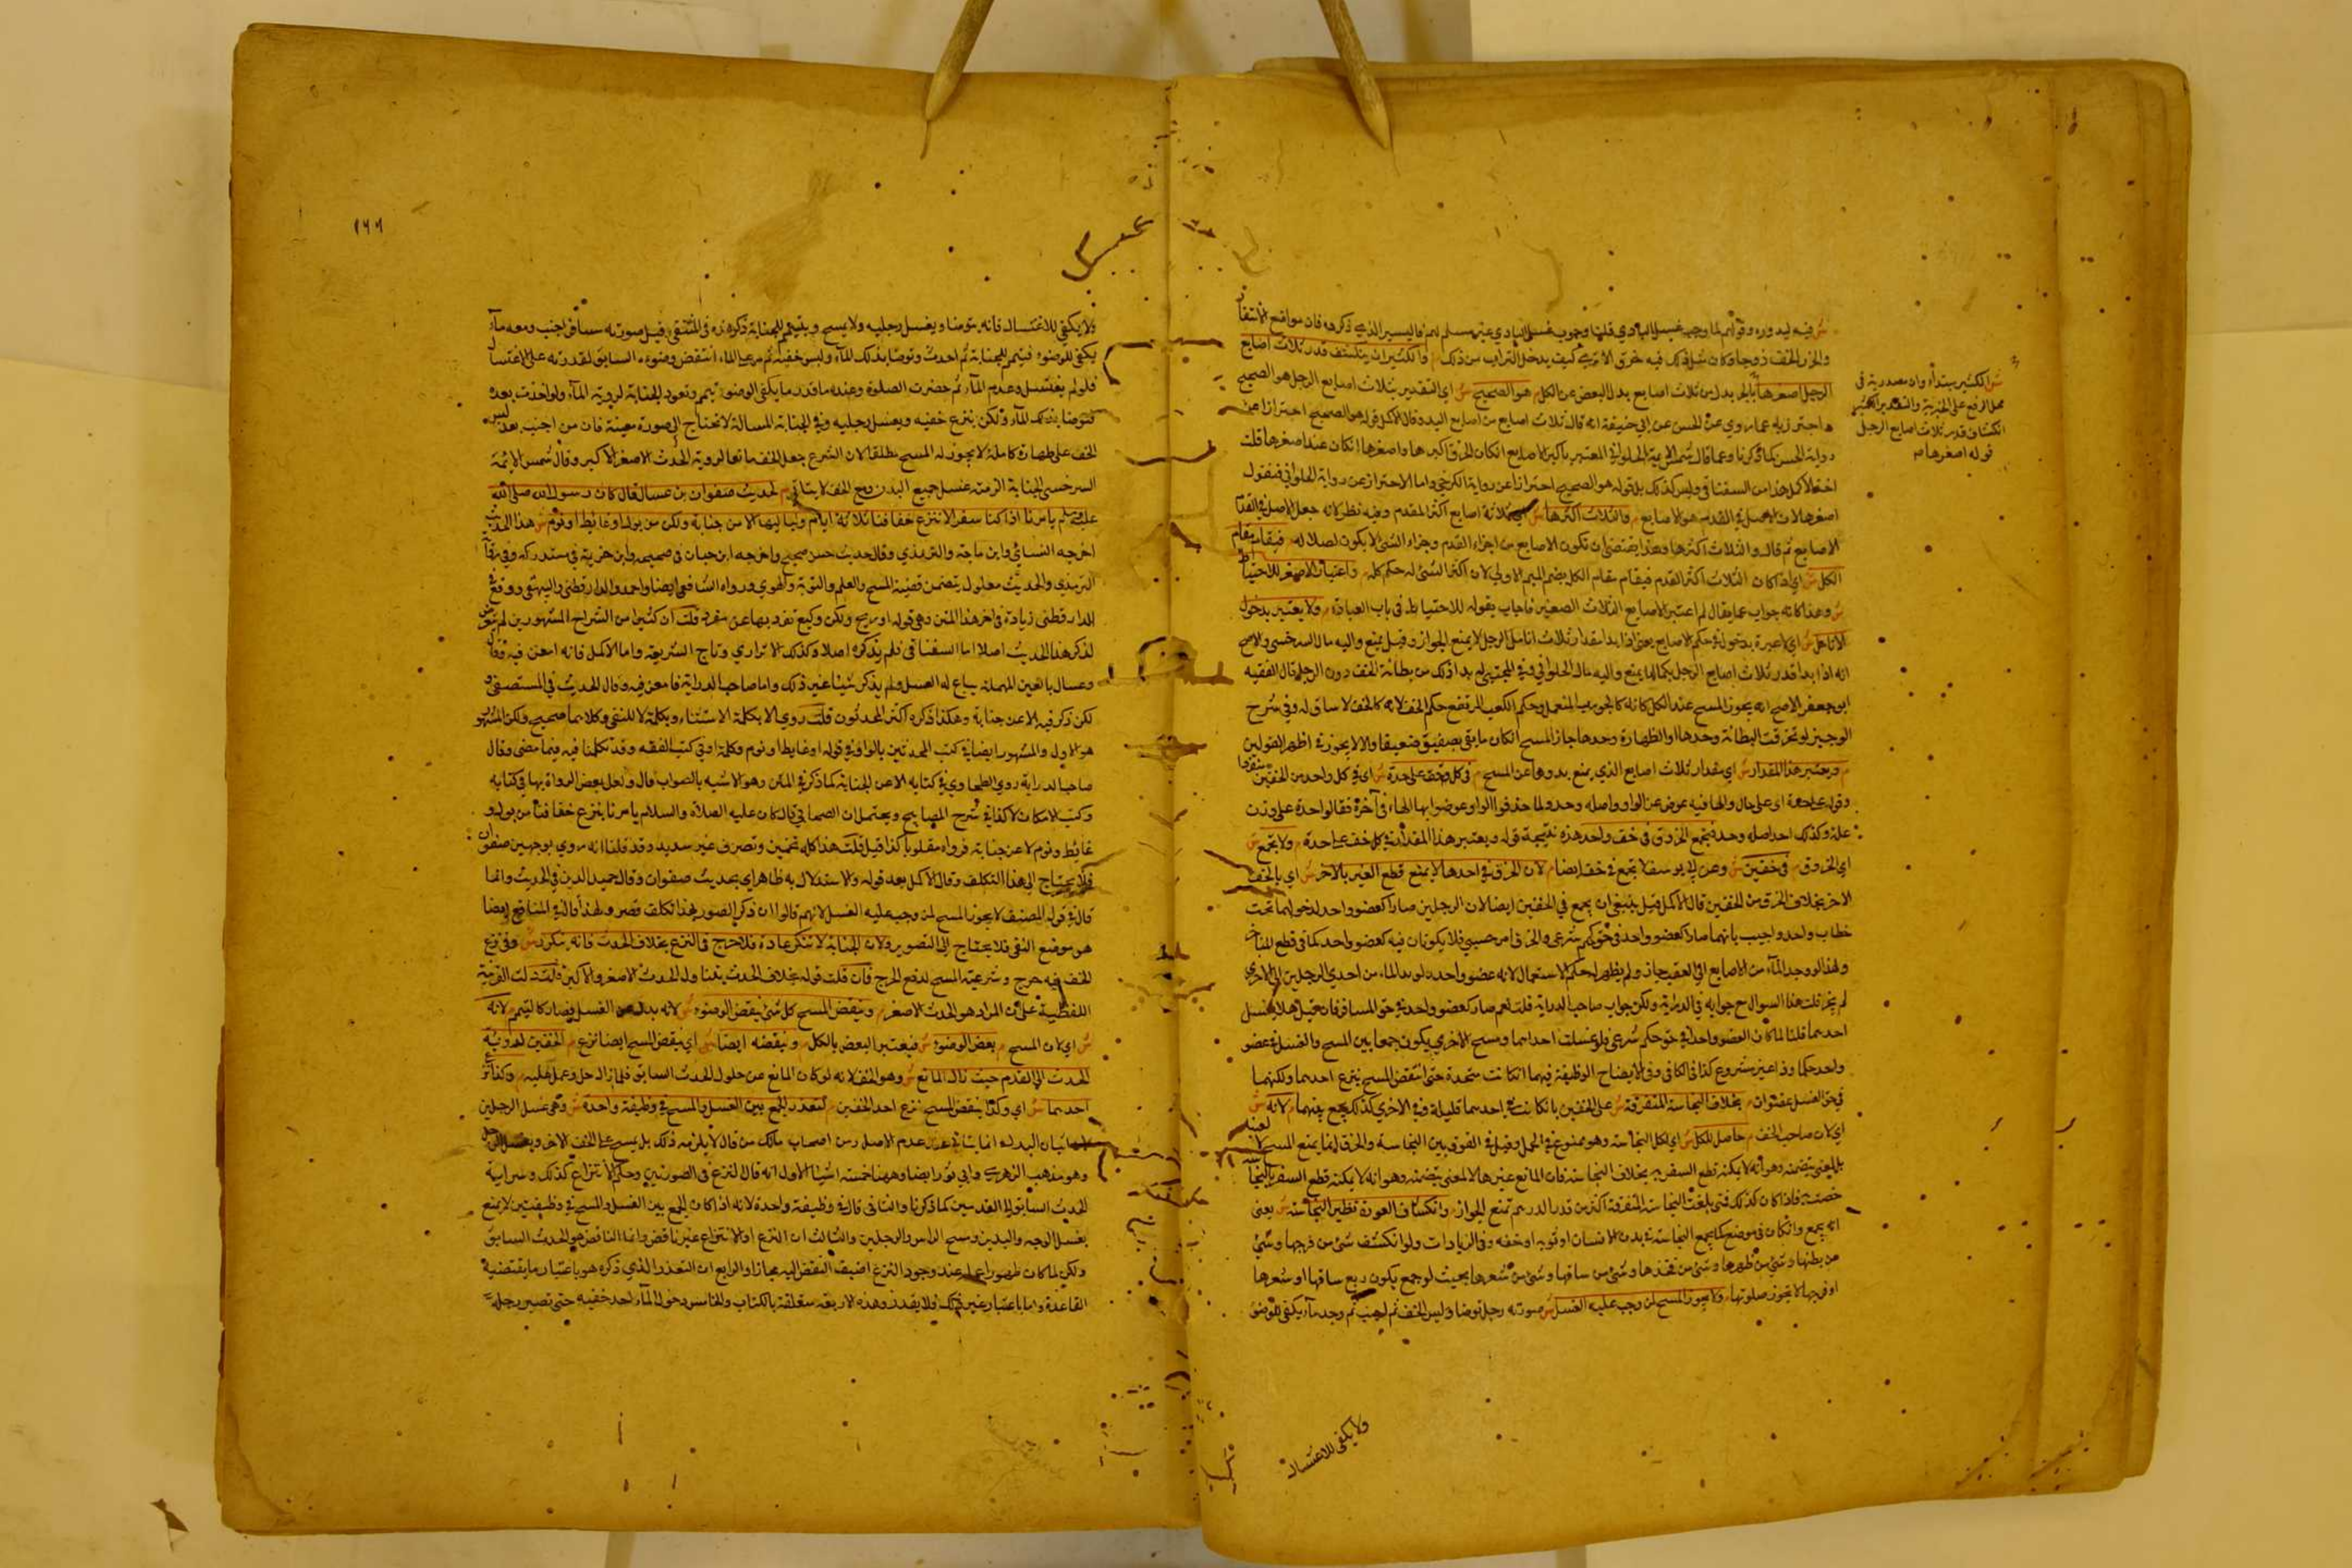 ش فيه ليد وره وقوالهم لما وجب غسل البادي قلنا وجوب غسل البادي غير مسلم لهم فاليسير الذي ذكره فان مواقع الاشفار
والخرز الخف ذوجا وكان شل ذلك فيه خرق الا ترى كيف يدخل التراب من ذلك م والكثير ان ينكشف قدر ثلاث اصابع
الرجل اصغرها بالجر بدل من ثلاث اصابع بدل البعض عن الكل م هو الصحيح ش اي التقدير بثلاث اصابع الرجل هو الصحيح
احترز به عما روي عن الحسن عن ابي حنيفة انه قال ثلاث اصابع من اصابع اليد وقال الاكمل قوله هو الصحيح احترازا عن
رواية الحسن كما ذكرنا وعما قال شمس الائمة الحلواني المعتبر باكبر الاصابع ان كان الخرق اكبرها واصغرها ان كان عند اصغرها قلت
اخذ الاكمل هذا من السغناقي وليس كذلك بل قوله هو الصحيح احترازا عن رواية الكرخي واما الاحتراز عن رواية الحلواني فبقول
اصغرها لان الاصل في القدم هو الاصابع م والثلاث اكثرها ش اي ثلاثة اصابع اكثر المقدم وفيه نظر لانه جعل الاصل في القدم
الاصابع ثم قال والثلاث اكثرها وهذا يقتضي ان تكون الاصابع من اجزاء القدم وجزاء الشئ لا يكون اصلا له م فيقام مقام
الكل ش اي اذا كان الثلاث اكثر القدم فيقام مقام الكل بضم الميم الاولى لان اكثر الشئ له حكم كله م واعتبار الاصغر للاحتياط
ش وهذا كانه جواب عما يقال لم اعتبر الاصابع الثلاث الصغير فاجاب بقوله للاحتياط في باب العبادة م ولا يعتبر بدخول
الانامل ش اي لا عبرة بدخول في حكم الاصابع يعني اذا بدا مقدار ثلاث انامل الرجل لا يمنع الجواز وقيل يمنع واليه مال السرخسي والاصح
انه اذا بدا قدر ثلاث اصابع الرجل بكمالها يمنع واليه مال الحلواني وفي المجتبى لم يبد اذلك من بطانة الخف دون الرجل قال الفقيه
ابو جعفر الاصح انه يجوز المسح عند الكل كانه كالجورب المنعل وحكم الكعب المرتفع حكم الخف لانه كالخف لا ساق له وفي شرح
الوجيز لو تخرقت البطانة وحدها او الظهارة وحدها جاز المسح ان كان ما بقي يصفيق ضعيفا والا لا يجوز في اظهر القولين
م ويعتبر هذا المقدار ش اي مقدار ثلاث اصابع الذي يمنع بدوها عن المسح م في كل خف على حدة ش اي في كل واحد من الخفين منفردا
وقوله على حدة اي على حال والها فيه عوض عن الواو واصله وحد ولما حذفوا الواو عوضوا بها الهاء في آخره فقالوا حدة على وزن
علة وكذلك احد اصله وحد م فيجمع الخروق في خف واحد هذه نتيجة قوله ويعتبر هذا المقدار في كل خف على حدة م ولا يجمع ش
اي الخروق م في خفين ش وعن ابي يوسف لا يجمع في خف ايضا م لان الخرق في احدهما لا يمنع قطع السفر بالاخر ش اي بالخف
الاخر بخلاف الخرق من الخفين قال الاكمل قيل ينبغي ان يجمع في الخفين ايضا لان الرجلين صارا كعضو واحد لدخولهما تحت
خطاب واحد واجيب بانهما صارا كعضو واحد في حق حكم شرعي والخرق امر حسي فلا يكونان فيه كعضو واحد كما في قطع المسافر
ولهذا لو وجد الماء من الاصابع الى العقب جاز ولم يظهر له حكم الاستعمال لانه عضو واحد ولو بدا الماء من احدى الرجلين الى الاخرى
لم يجز قلت هذا السوال مع جوابه في الدراية ولكن جواب صاحب الدراية قلت نعم صار كعضو واحد في حق المسافر فان قيل هلا يغسل
احدهما قلنا لما كان العضو واحدا في حق حكم شرعي فلو غسلت احداهما ومسح الاخرى يكون جمعا بين المسح والغسل في عضو
واحد حكما وذا غير مشروع كذا في الكافي وفي الايضاح الوظيفة فيهما ان كانت متحدة حتى انتقض المسح بنزع احدهما ولكنهما
في حق الغسل عضوان م بخلاف النجاسة المتفرقة ش على الخفين بان كانت في احدهما قليلة وفي الاخرى كذلك يجمع بينهما م لانه ش
اي لان صاحب الخف م حامل للكل ش اي لكل النجاسة وهو ممنوع في الحمل وقيل في الفرق بين النجاسة والخرق انما يمنع المسح لا لعينه
بل لمعنى يتضمنه وهو انه لا يمكنه قطع السفر به بخلاف النجاسة فان المانع عينها لا لمعنى يتضمنه وهو انه لا يمكنه قطع السفر بالنجاسة
خصت به فاذا كان كذلك فمتى بلغت النجاسة المتفرقة اكثر من قدر الدرهم تمنع الجواز م وانكشاف العورة نظير النجاسة ش يعني
انه يجمع وان كان في موضع كما يجمع النجاسة في بدن الانسان او ثوبه او خفه وفي الزيادات ولو انكشف شئ من فرجها وشئ
من بطنها وشئ من ظهرها وشئ من فخذها وشئ من ساقها وشئ من شعرها بحيث لو جمع يكون ربع ساقها او شعرها
او فرجها لا تجوز صلوتها م ولا يجوز المسح لمن وجب عليه الغسل ش صورته رجل توضا ولبس الخف ثم اجنب ثم وجد ماء يكفي للوضوء
ش الكثير مبتدأ وان مصدرية في
محل الرفع على الخبرية والتقدير الكثير
انكشاف قدر ثلاث اصابع الرجل
قوله اصغرها م
ولا يكفي للاغتسال
١٦٦
ولا يكفي للاغتسال فانه يتوضا ويغسل رجليه ولا يمسح ويتيمم للجنابة ذكره في المنتقى وقيل صورته مسافر اجنب ومعه ماء
يكفي للوضوء فتيمم للجنابة ثم احدث وتوضا بذلك الماء ولبس خفيه ثم مر على الماء انتقض وضوءه السابق لقدرته على الاغتسال
فلو لم يغتسل وعدم الماء ثم حضرت الصلوة وعنده ماء قدر ما يكفي الوضوء تيمم وتعود الجنابة لروية الماء ولو احدث بعده
فتوضا بذلك الماء ولكن ينزع خفيه ويغسل رجليه وفي الجنابة المسالة لا تحتاج الى صورة معينة فان من اجنب بعد لبس
الخف على طهارة كاملة لا يجوز له المسح مطلقا لان الشرع جعل الخف مانعا لروية الحدث الاصغر لا اكبر وقال شمس الائمة
السرخسي الجنابة الزمته غسل جميع البدن ومع الخف لا يتاتى م لحديث صفوان بن عسال قال كان رسول الله صلى الله
عليه وسلم يامرنا اذا كنا سفرا لا ننزع خفافنا ثلاثة ايام ولياليها الا من جنابة ولكن من بول او غايط او نوم ش هذا الحديث
اخرجه النسائي وابن ماجة والترمذي وقال حديث حسن صحيح واخرجه ابن حبان في صحيحه وابن خزيمة في مستدركه وفي رواية
الترمذي والحديث معلول يتضمن قصة المسح والعلم والتوبة والهوي ورواه الشافعي ايضا واحمد والدارقطني والبيهقي ووقع في
الدارقطني زيادة في اخر هذا المتن وهي قوله او ريح ولكن وكيع تفرد بها عن مسعر قلت ان كثيرا من الشراح المشهورين لم يتعرض
لذكر هذا الحديث اصلا اما السغناقي فلم يذكره اصلا وكذلك الاترازي وتاج الشريعة واما الاكمل فانه امعن فيه فقال
وعسال بالعين المهملة بياع له العسل ولم يذكر شيئا غير ذلك واما صاحب الدراية فامعن فيه وقال الحديث في المستصفى و
لكن ذكر فيه الا عن جنابة وهكذا ذكره اكثر المحدثون قلت روي الا بكلمة الاستثناء وبكلمة لا للنفي وكلاهما صحيح ولكن المشهور
هو الاول والمشهور ايضا في كتب المحدثين بالواو في قوله او غايط او نوم وكلمة او في كتب الفقه وقد تكلمنا فيه فيما مضى وقال
صاحب الدراية روي الطحاوي في كتابه الا عن الجنابة كما ذكر في المتن وهو الاشبه بالصواب قال ولعل بعض الرواة بها في كتابه
وكتب الامكان لا كفاية شرح المصابيح ويحتمل ان الصحابي قال كان عليه الصلاة والسلام يامرنا بنزع خفافنا من بول و
غائط ونوم لا عن جنابة فرواه مقلوبا كذا قيل قلت هذا كله تخمين وتصرف غير سديد وقد قلنا انه روي بوجهين صفوان
فلا يحتاج الى هذا التكلف وقال الاكمل بعد قوله والاستدلال به ظاهر اي بحديث صفوان وقال حميد الدين في الحديث وانما
قال في قوله المصنف لا يجوز المسح لمن وجب عليه الغسل لانهم قالوا ان ذكر الصور بهذا تكلف قصر ولهذا قال في المنافع ايضا
هو موضع النفي فلا يحتاج الى التصوير م ولان الجنابة لا تتكرر عادة فلا حرج في النزع بخلاف الحدث فانه يتكرر ش وفي نزع
الخف فيه حرج وشرعية المسح لدفع الحرج فان قلت قوله بخلاف الحدث يتناول الحدث الاصغر والاكبر قلت دلت القرينة
اللفظية على ان المراد هو الحدث الاصغر م وينقض المسح كل شئ ينقض الوضوء ش لانه بدل عن الغسل فصار كالتيمم م لانه
ش اي لان المسح م بعض الوضوء ش فيعتبر البعض بالكل م وينقضه ايضا ش اي ينقض المسح ايضا نزع م الخفين لسراية
الحدث الى القدم حيث زال المانع ش وهو الخف لانه لو كان المانع من حلول الحدث السابق فلما زال حل وعمل عمله م وكذا نزع
احدهما ش اي وكذا ينقض المسح نزع احد الخفين م لتعذر الجمع بين الغسل والمسح في وظيفة واحدة ش وهي غسل الرجلين
اتيان البدل انما يتاتى عند عدم الاصل ومن اصحاب مالك من قال لا يلزمه ذلك بل يمسح على الخف الاخر ويغسل الرجل
وهو مذهب الزهري وابي ثور ايضا وههنا خمسة اشيا الاول انه قال النزع في الصورتين وحكم الانتزاع كذلك وسراية
الحدث السابق الى القدمين كما ذكرنا والثاني قال في وظيفة واحدة لانه اذا كان الجمع بين الغسل والمسح في وظيفتين لا يمنع
بغسل الوجه واليدين ومسح الراس والرجلين والثالث ان النزع او الانتزاع غير ناقض وانما الناقض هو الحدث السابق
ولكن لما كان ظهور عمله عند وجود النزع اضيف النقض اليه مجازا والرابع ان التعذر الذي ذكره هو باعتبار ما يقتضيه
القاعدة واما باعتبار غير ذلك فلا يقدر وهذه الاربعة متعلقة بالكتاب والخامس دخول الماء احد خفيه حتى تصير رجله